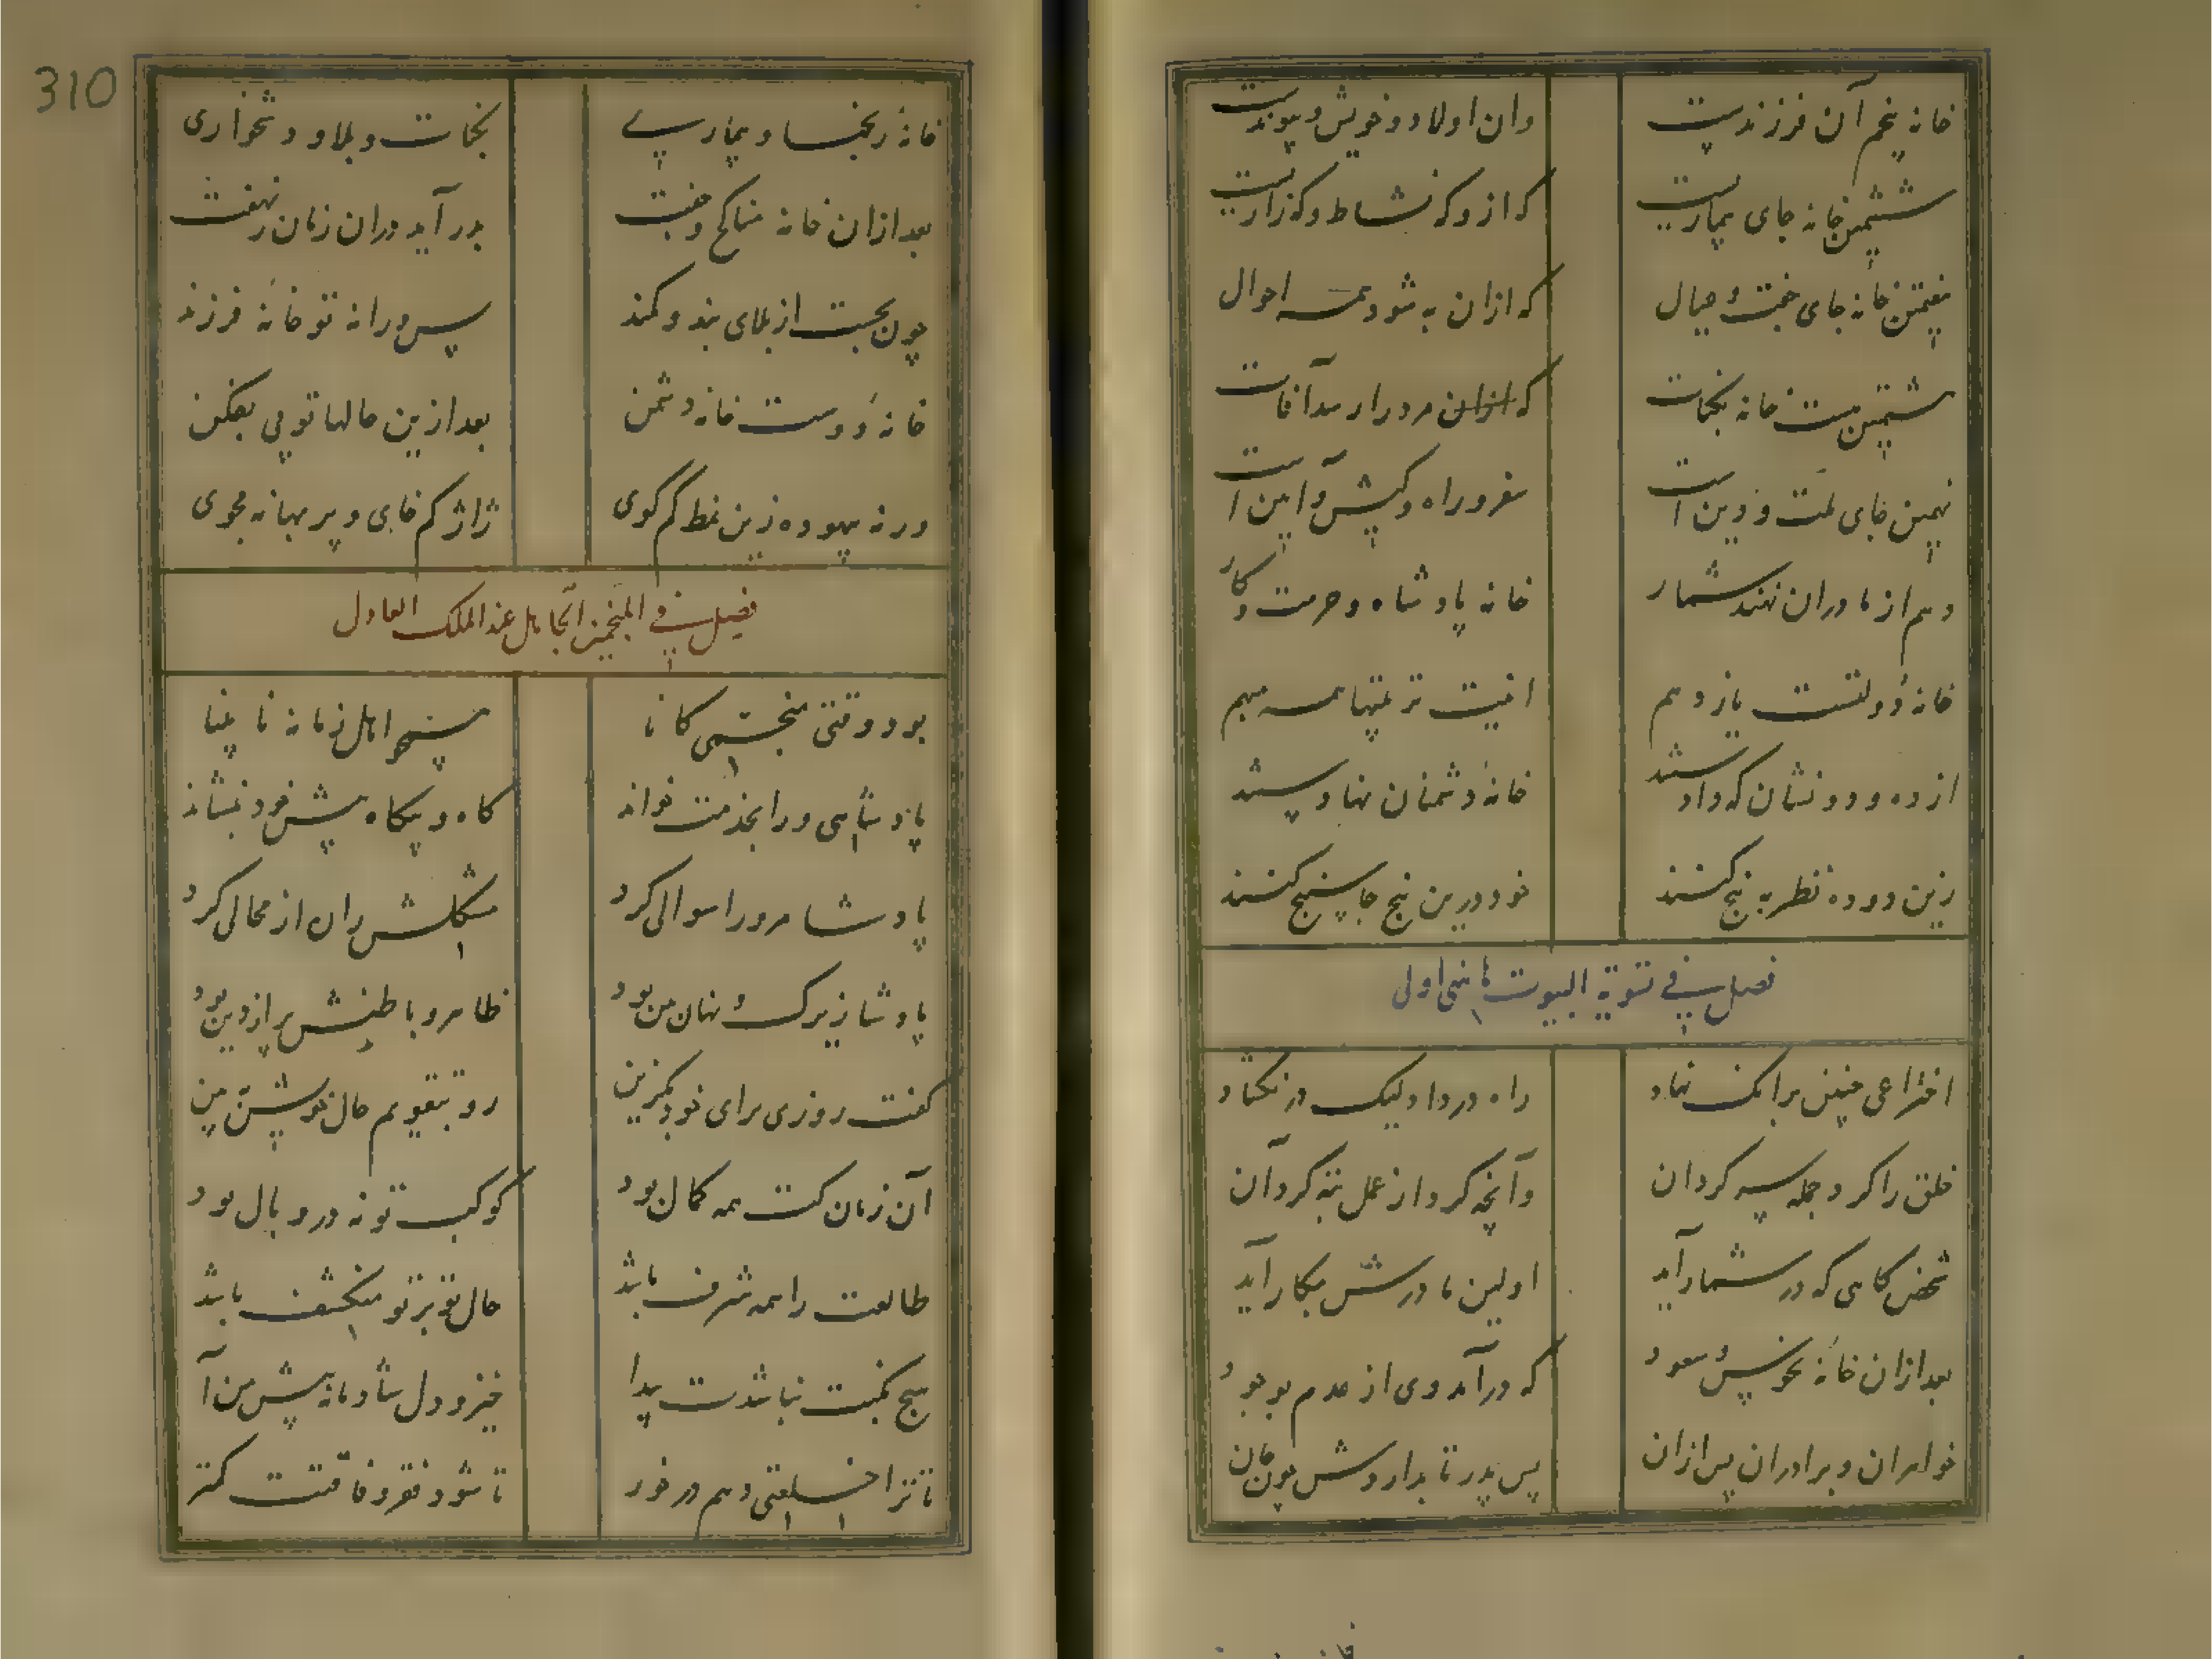 خانه پنجم آن فرزندست
وان اولاد و خویش و پیوندست
ششمین خانه جای بیماریست
که ازو که نشاط و که زاریست
هفتمین خانه جای جفت و عیال
که ازان به شود همه احوال
هشتمین هست خانه نکبات
که ازان مرد را رسد آفات
نهمین جای ملت و دین است
سفر و راه و کیش و آیین است
دهم از مادران نهند شمار
خانه پادشاه و حرمت و کار
خانه دولتست یازدهم
همه مبهم
از ده و دو نشان که داد ستد
خانه دشمنان نهاد و سند
زین دو و ده نظر به پنج کنند
خود درین پنج جا سپنج کنند
فصل فی تسویة البیوت اولی
اختراعی چنین برانک نهاد
راه در داد لیک در نکشاد
خلق را کرد جمله سرکردان
وآنچه کرد از عمل بتر کرد آن
شخص کاهی که در شمار آید
اولین مادرش بکار آید
بعد ازان خانه نحوس و سعود
که درآمد وی از عدم بوجود
خواهران و برادران پس ازان
پس پدر تا بدارد وش چون جان
310
خانه رنجها و بیماری
نکبات و بلا و دشخواری
بعد ازان خانه مناکح و جفت
بدر آید دران زمان ز نهفت
چون بجست از بلای بند و کمند
پس ورا نه تو خانه فرزند
خانه دوست خانه دشمن
بعد ازین حالها تو پی بفکن
ورنه بیهوده زین نمط کم کوی
ژاژ کم خای و پر بهانه مجوی
فصل فی المنجمین الجاهل عند الملک العادل
بود وقتی منجمی کانا
همچو اهل زمانه نابینا
پادشاهی ورا بخدمت خواند
کاه و بیکاه پیش خود بنشاند
پادشا مرورا سوالی کرد
مشکلش ران از محالی کرد
پادشا زیرک و نهان بین بود
ظاهر و باطنش پر از دین بود
کفت روزی برای خود بکزین
رو بتقویم حال خویش ببین
آن زمان کت همه کمال بود
کوکبت تو نه در وبال بود
طالعت را همه شرف باشد
حال تو بر تو منکشف باشد
هیچ نکبت نباشدت پیدا
خیز و دل شادمانه پیش من آ
تا ترا خلعتی دهم در خور
تا شود فقر و فاقتت کمتر